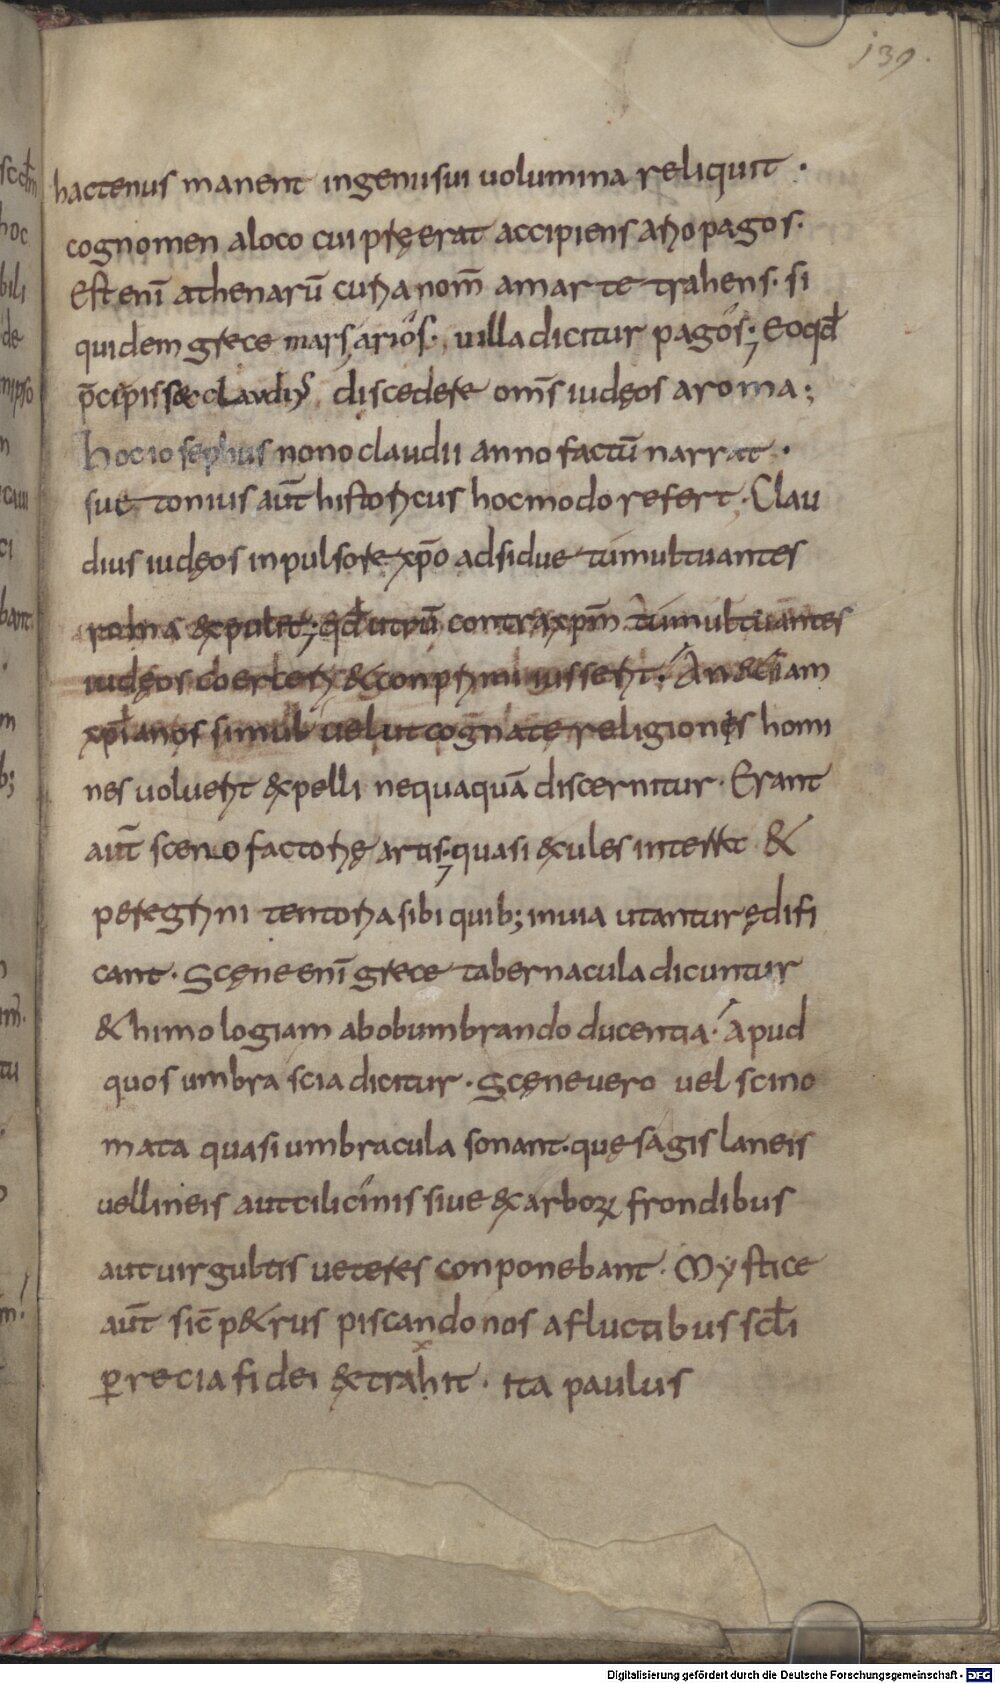 139.
hactenus manent ingenii sui uolumina reliquit ·
cognomen a loco cui pręerat accipiens ariopagos·
Est eni̅ athenaru̅ curia nom̅ a marte trahens· si
quidem grece mars arios· uilla dicitur pagos; Eo qd̅
p̅cipisset claudiꝰ discedere om̅s iudęos a roma;
Hoc iosephus nono claudii anno factu̅ narrat ·
suetonius aut̅ historicus hoc modo refert · Clau
dius iudęos inpulsore xp̅o adsidue tumultuantes
roma expulit; qd̅ utru̅ contra xpm̅ tumultuantes
iudęos coerceri & conprimi iusserit· An &iam
xp̅ianos simul uelut cognatę religionis homi
nes uoluerit expelli nequaqua̅ discernitur · Erant
aut̅ sceno factorię artis; quasi exules interrt &
peregrini tentoria sibi quib; in uia utantur ędifi
cant · Scęne eni̅ grece tabernacula dicuntur
&himologiam ab obumbrando ducentia· Apud
quos umbra scia dicitur · Scęne uero uel scino
mata quasi umbracula sonant· quę sagis laneis
uel lineis aut cilicinis siue ex arboꝝ frondibus
aut uirgultis ueteres conponebant · Mystice
aut̅ sic̅ p&rus piscando nos a fluctibus scl̅i
ꝑ recia fidei extrahit · ita paulus
Digitalisierung gefördert durch die Deutsche Forschungsgemeinschaft - DFG